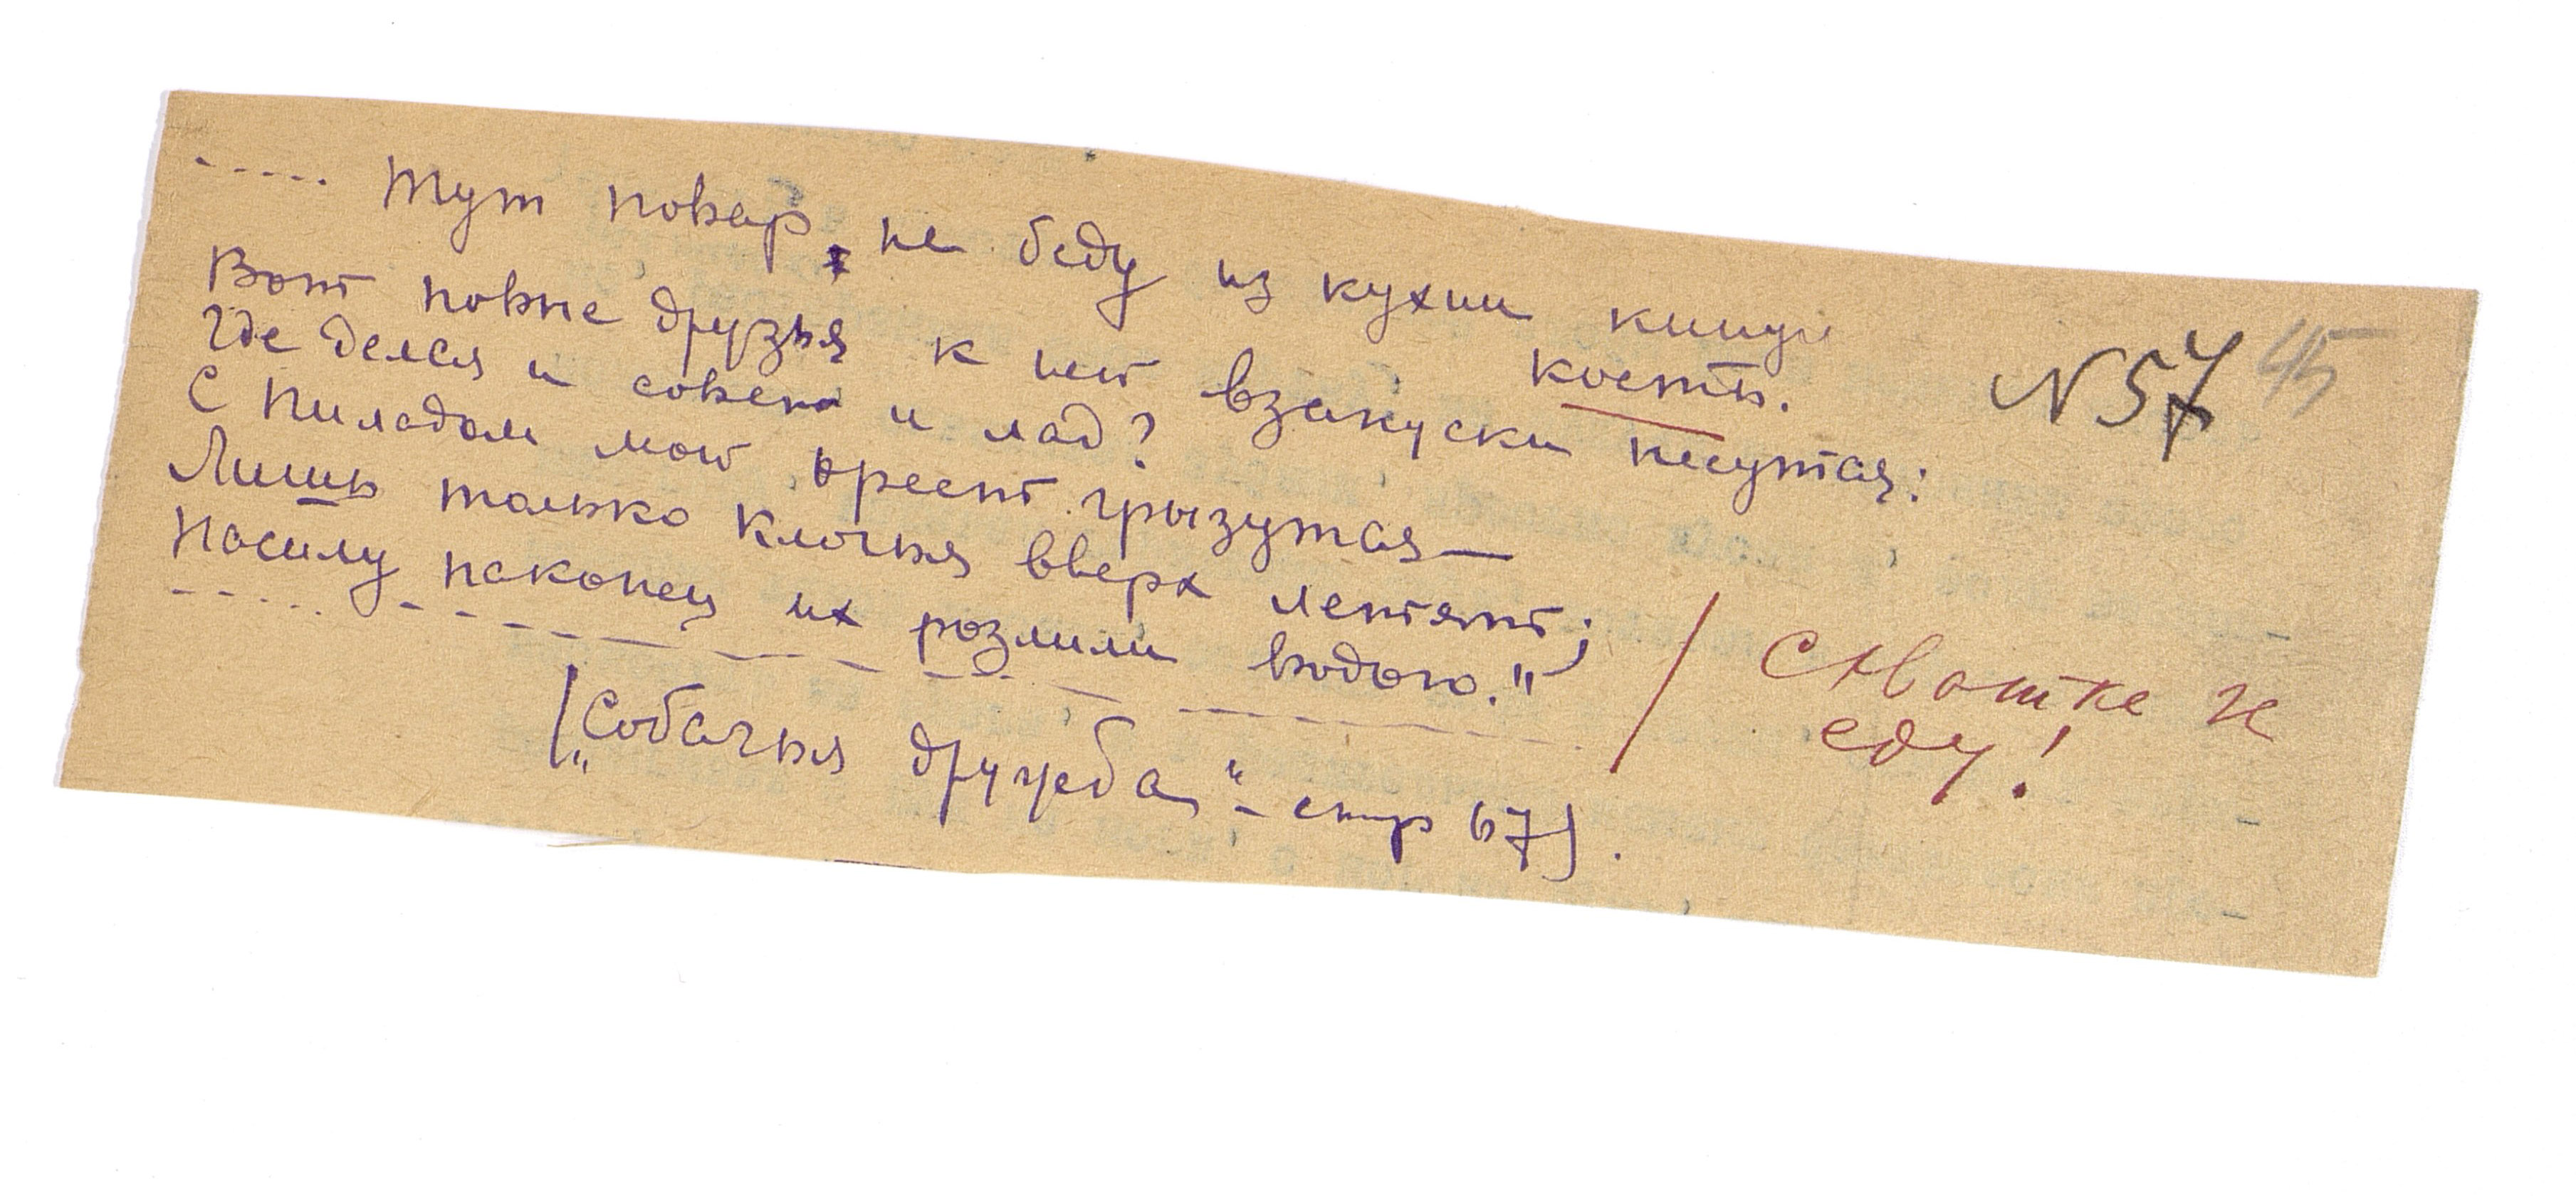 ..... Тут повар, не беду из кухни кинул
кость.
Вот новые друзья к ней взапуски несутся:
Где делся и совет и лад?
С Пиладом мой Орест грызутся —
Лишь только клочья вверх летят;
Насилу наконец их розлили водою."
("Собачья дружба" - стр 67).
N 57
45
еду!